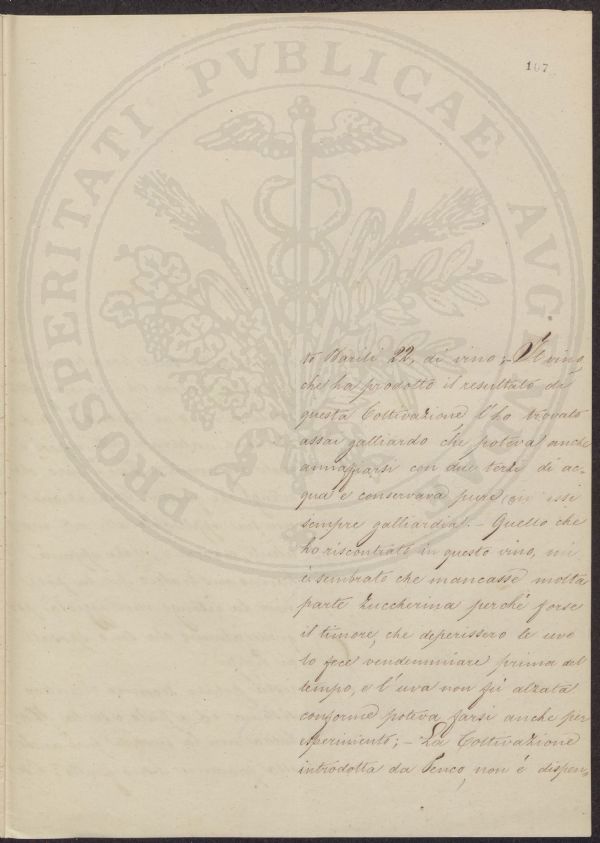 107
PROSPERITATI PVBLICAE AVGENDAE
to Barili 22, di vino; - Il vino,
che ha prodotto il resultato di
questa Coltivazione, l'ho trovato
assai galliardo, che poteva anche
annaffiarsi con due terzi di ac-
qua e conservava pure
sempre galliardia. - Quello che
ho riscontrato in questo vino, mi
è sembrato che mancasse molta
parte Zuccherina perché forse
il timore, che deperissero le uve
lo fece vendemmiare prima del
tempo, e l'uva non fù alzata
conforme poteva farsi anche per
esperimento; - La Coltivazione
introdotta da Penco, non è dispen-